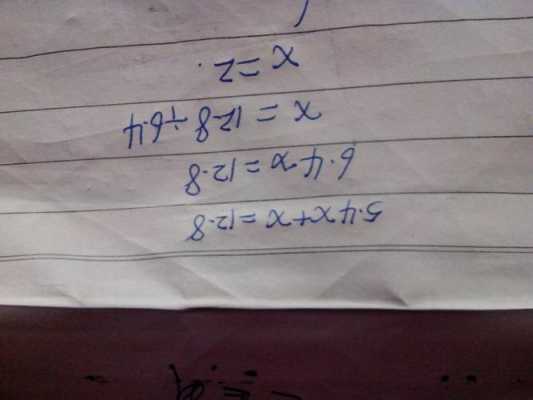 5.4x+x=12.8
6.4x=12.8
x=12.8÷6.4
x=2.